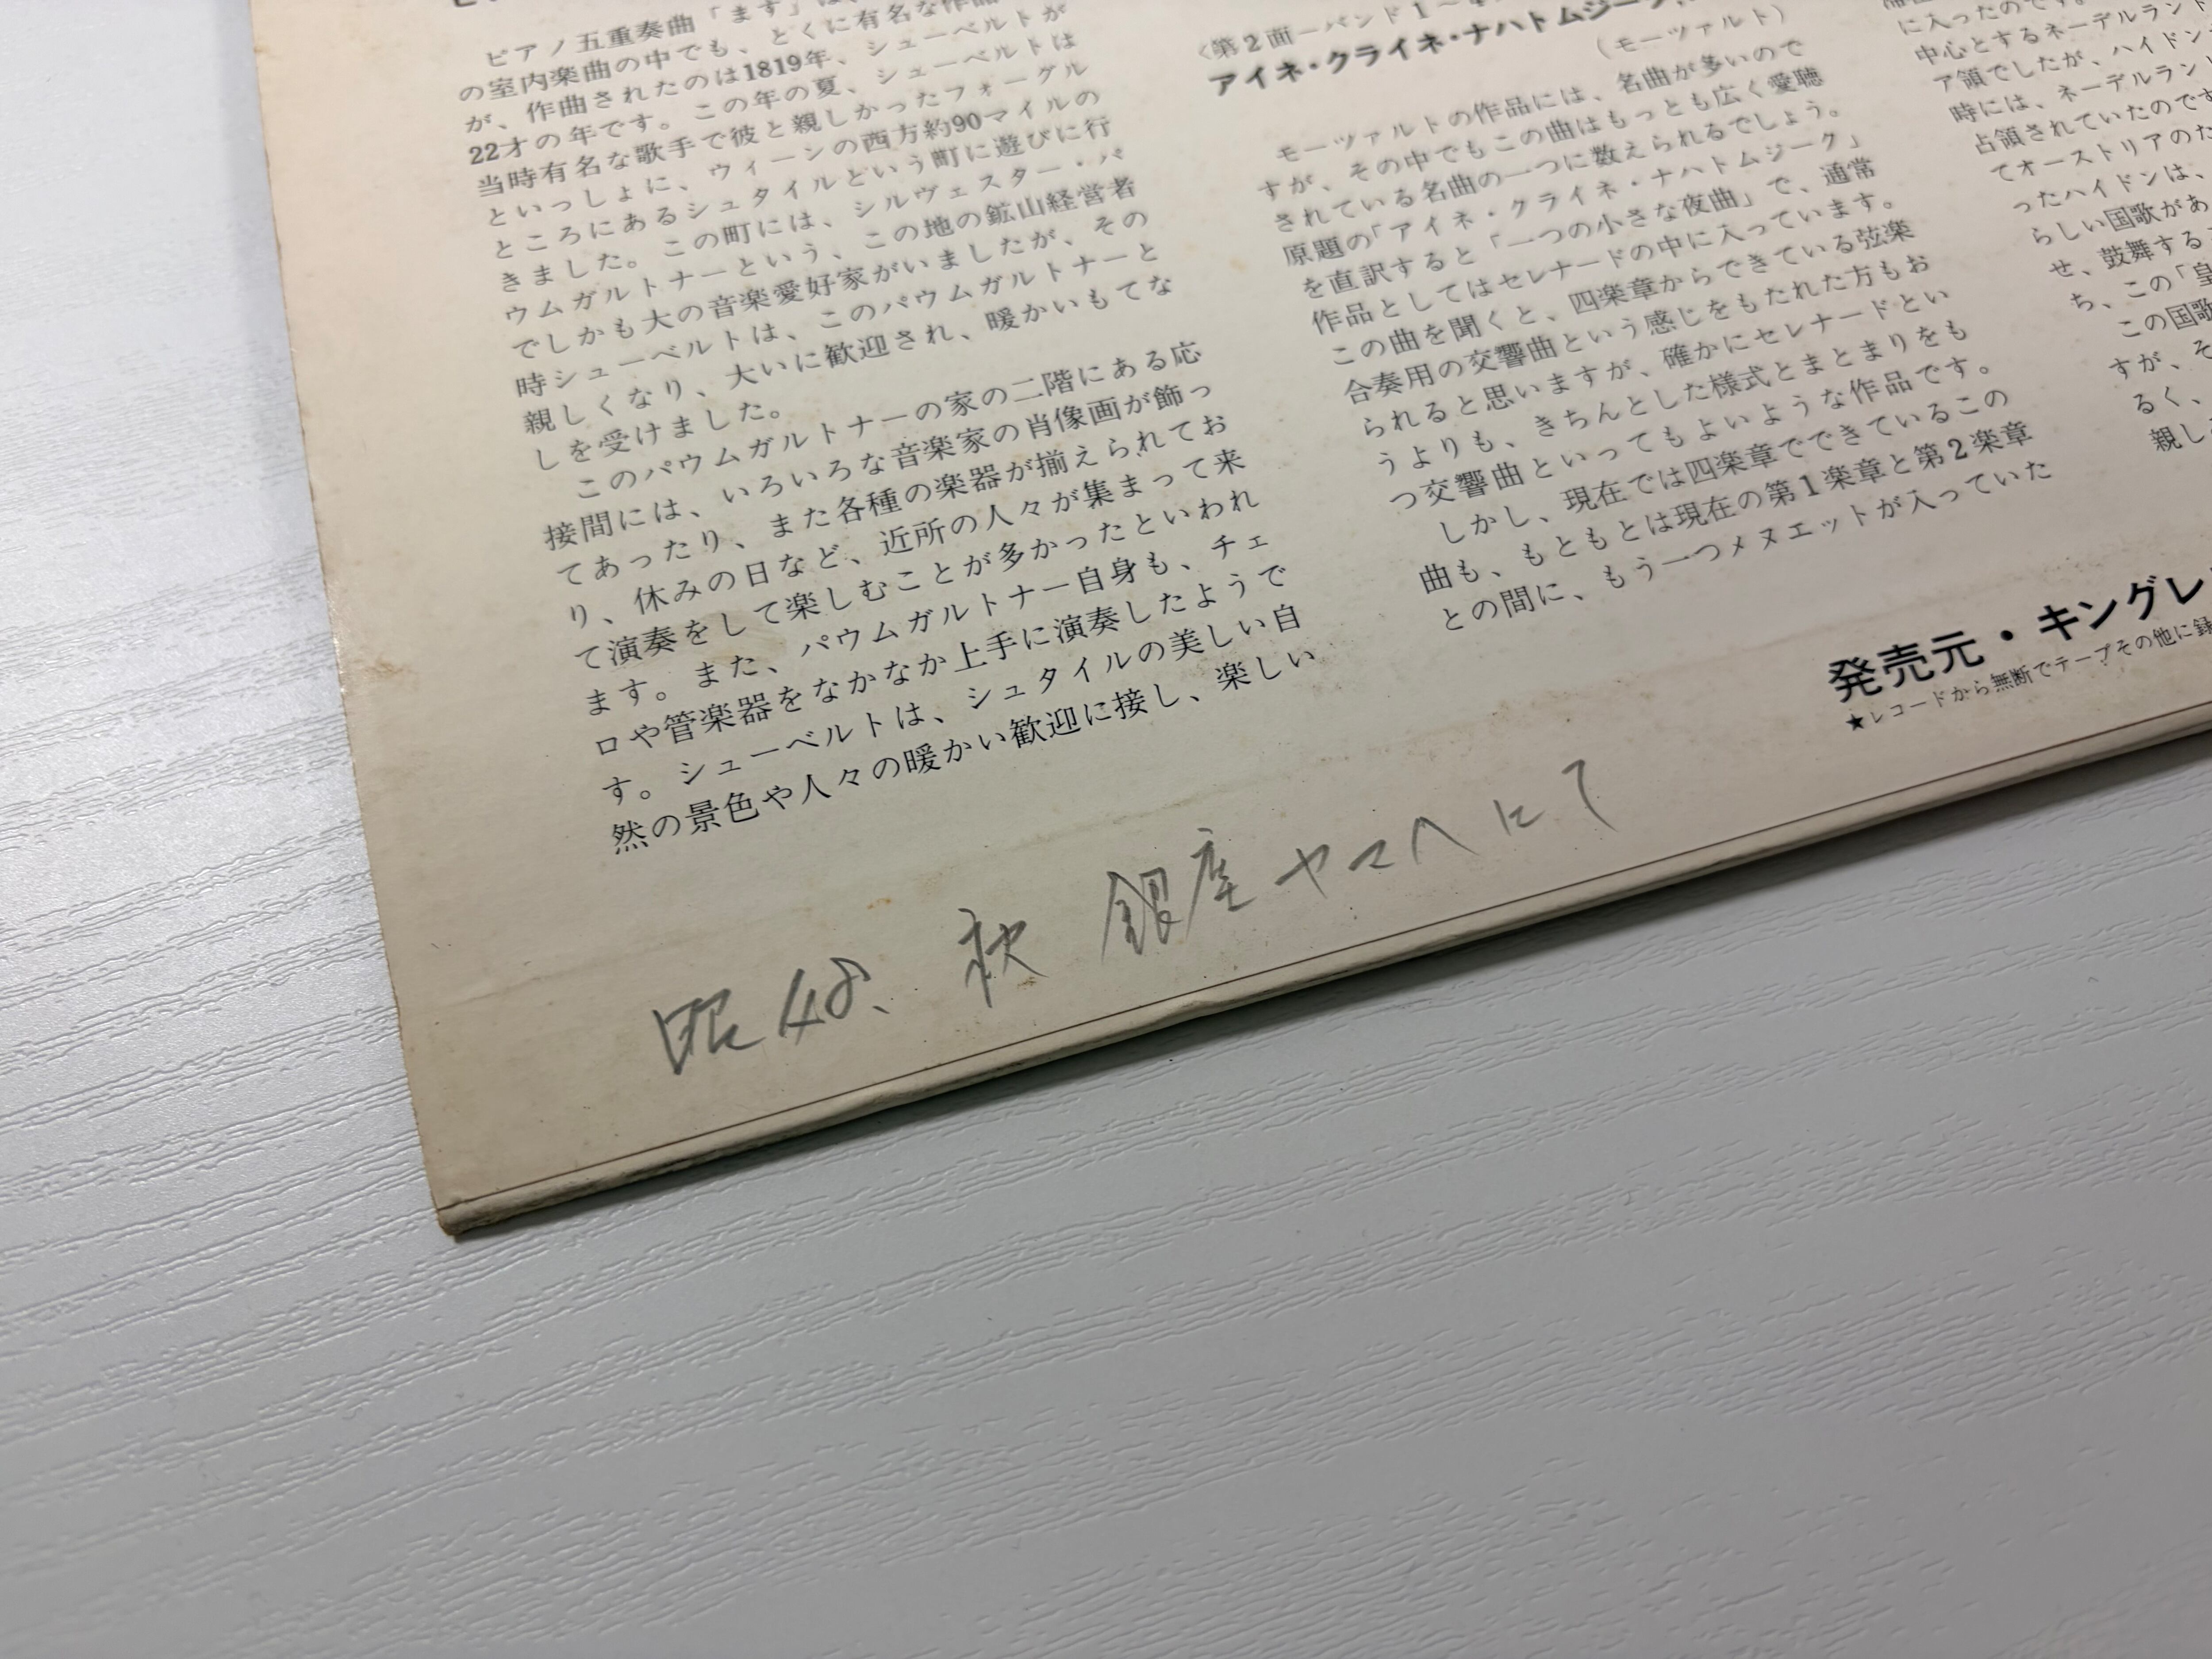 ピアノ五重奏曲「ます」は、
の室内楽曲の中でも、とくに有名な作品
が、作曲されたのは1819年、シューベルトが
22才の年です。この年の夏、シューベルトは
当時有名な歌手で彼と親しかったフォーグル
といっしょに、ウィーンの西方約90マイルの
ところにあるシュタイルという町に遊びに行
きました。この町には、シルヴェスター・パ
ウムガルトナーという、この地の鉱山経営者
でしかも大の音楽愛好家がいましたが、その
時シューベルトは、このパウムガルトナーと
親しくなり、大いに歓迎され、暖かいもてな
しを受けました。
このパウムガルトナーの家の二階にある応
接間には、いろいろな音楽家の肖像画が飾っ
てあったり、また各種の楽器が揃えられてお
り、休みの日など、近所の人々が集まって来
て演奏をして楽しむことが多かったといわれ
ます。また、パウムガルトナー自身も、チェ
ロや管楽器をなかなか上手に演奏したようで
す。シューベルトは、シュタイルの美しい自
然の景色や人々の暖かい歓迎に接し、楽しい
〈第2面―バンド1〜
アイネ・クライネ・ナハトムジーク
(モーツァルト)
モーツァルトの作品には、名曲が多いので
すが、その中でもこの曲はもっとも広く愛聴
されている名曲の一つに数えられるでしょう。
原題の「アイネ・クライネ・ナハトムジーク」
を直訳すると「一つの小さな夜曲」で、通常
作品としてはセレナードの中に入っています。
この曲を聞くと、四楽章からできている弦楽
合奏用の交響曲という感じをもたれた方もお
られると思いますが、確かにセレナードとい
うよりも、きちんとした様式とまとまりをも
つ交響曲といってもよいような作品です。
しかし、現在では四楽章でできているこの
曲も、もともとは現在の第1楽章と第2楽章
との間に、もう一つメヌエットが入っていた
に入ったのです。
中心とするネーデルランド
ア領でしたが、ハイドン
時には、ネーデルラン
占領されていたのです
てオーストリアのた
ったハイドンは、
らしい国歌があ
せ、鼓舞する
ち、この「皇
この国歌
すが、そ
るく、
親し
発売元・キングレ
★レコードから無断でテープその他に録
昭48、秋 銀座ヤマハにて